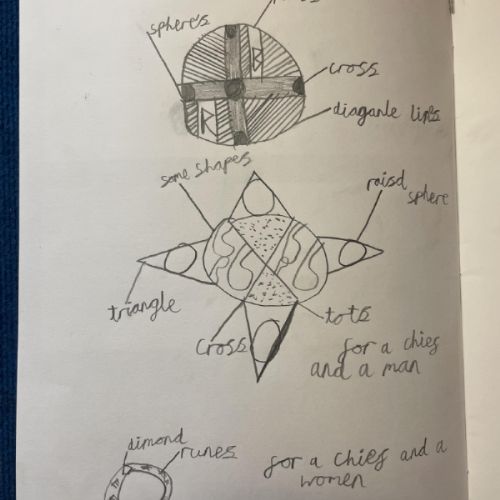 sphere's
cross
diaganle lines
some shapes
raisd
sphere
triangle
cross
tots
for a chies
and a man
dimond
runes
for a chies and a
women